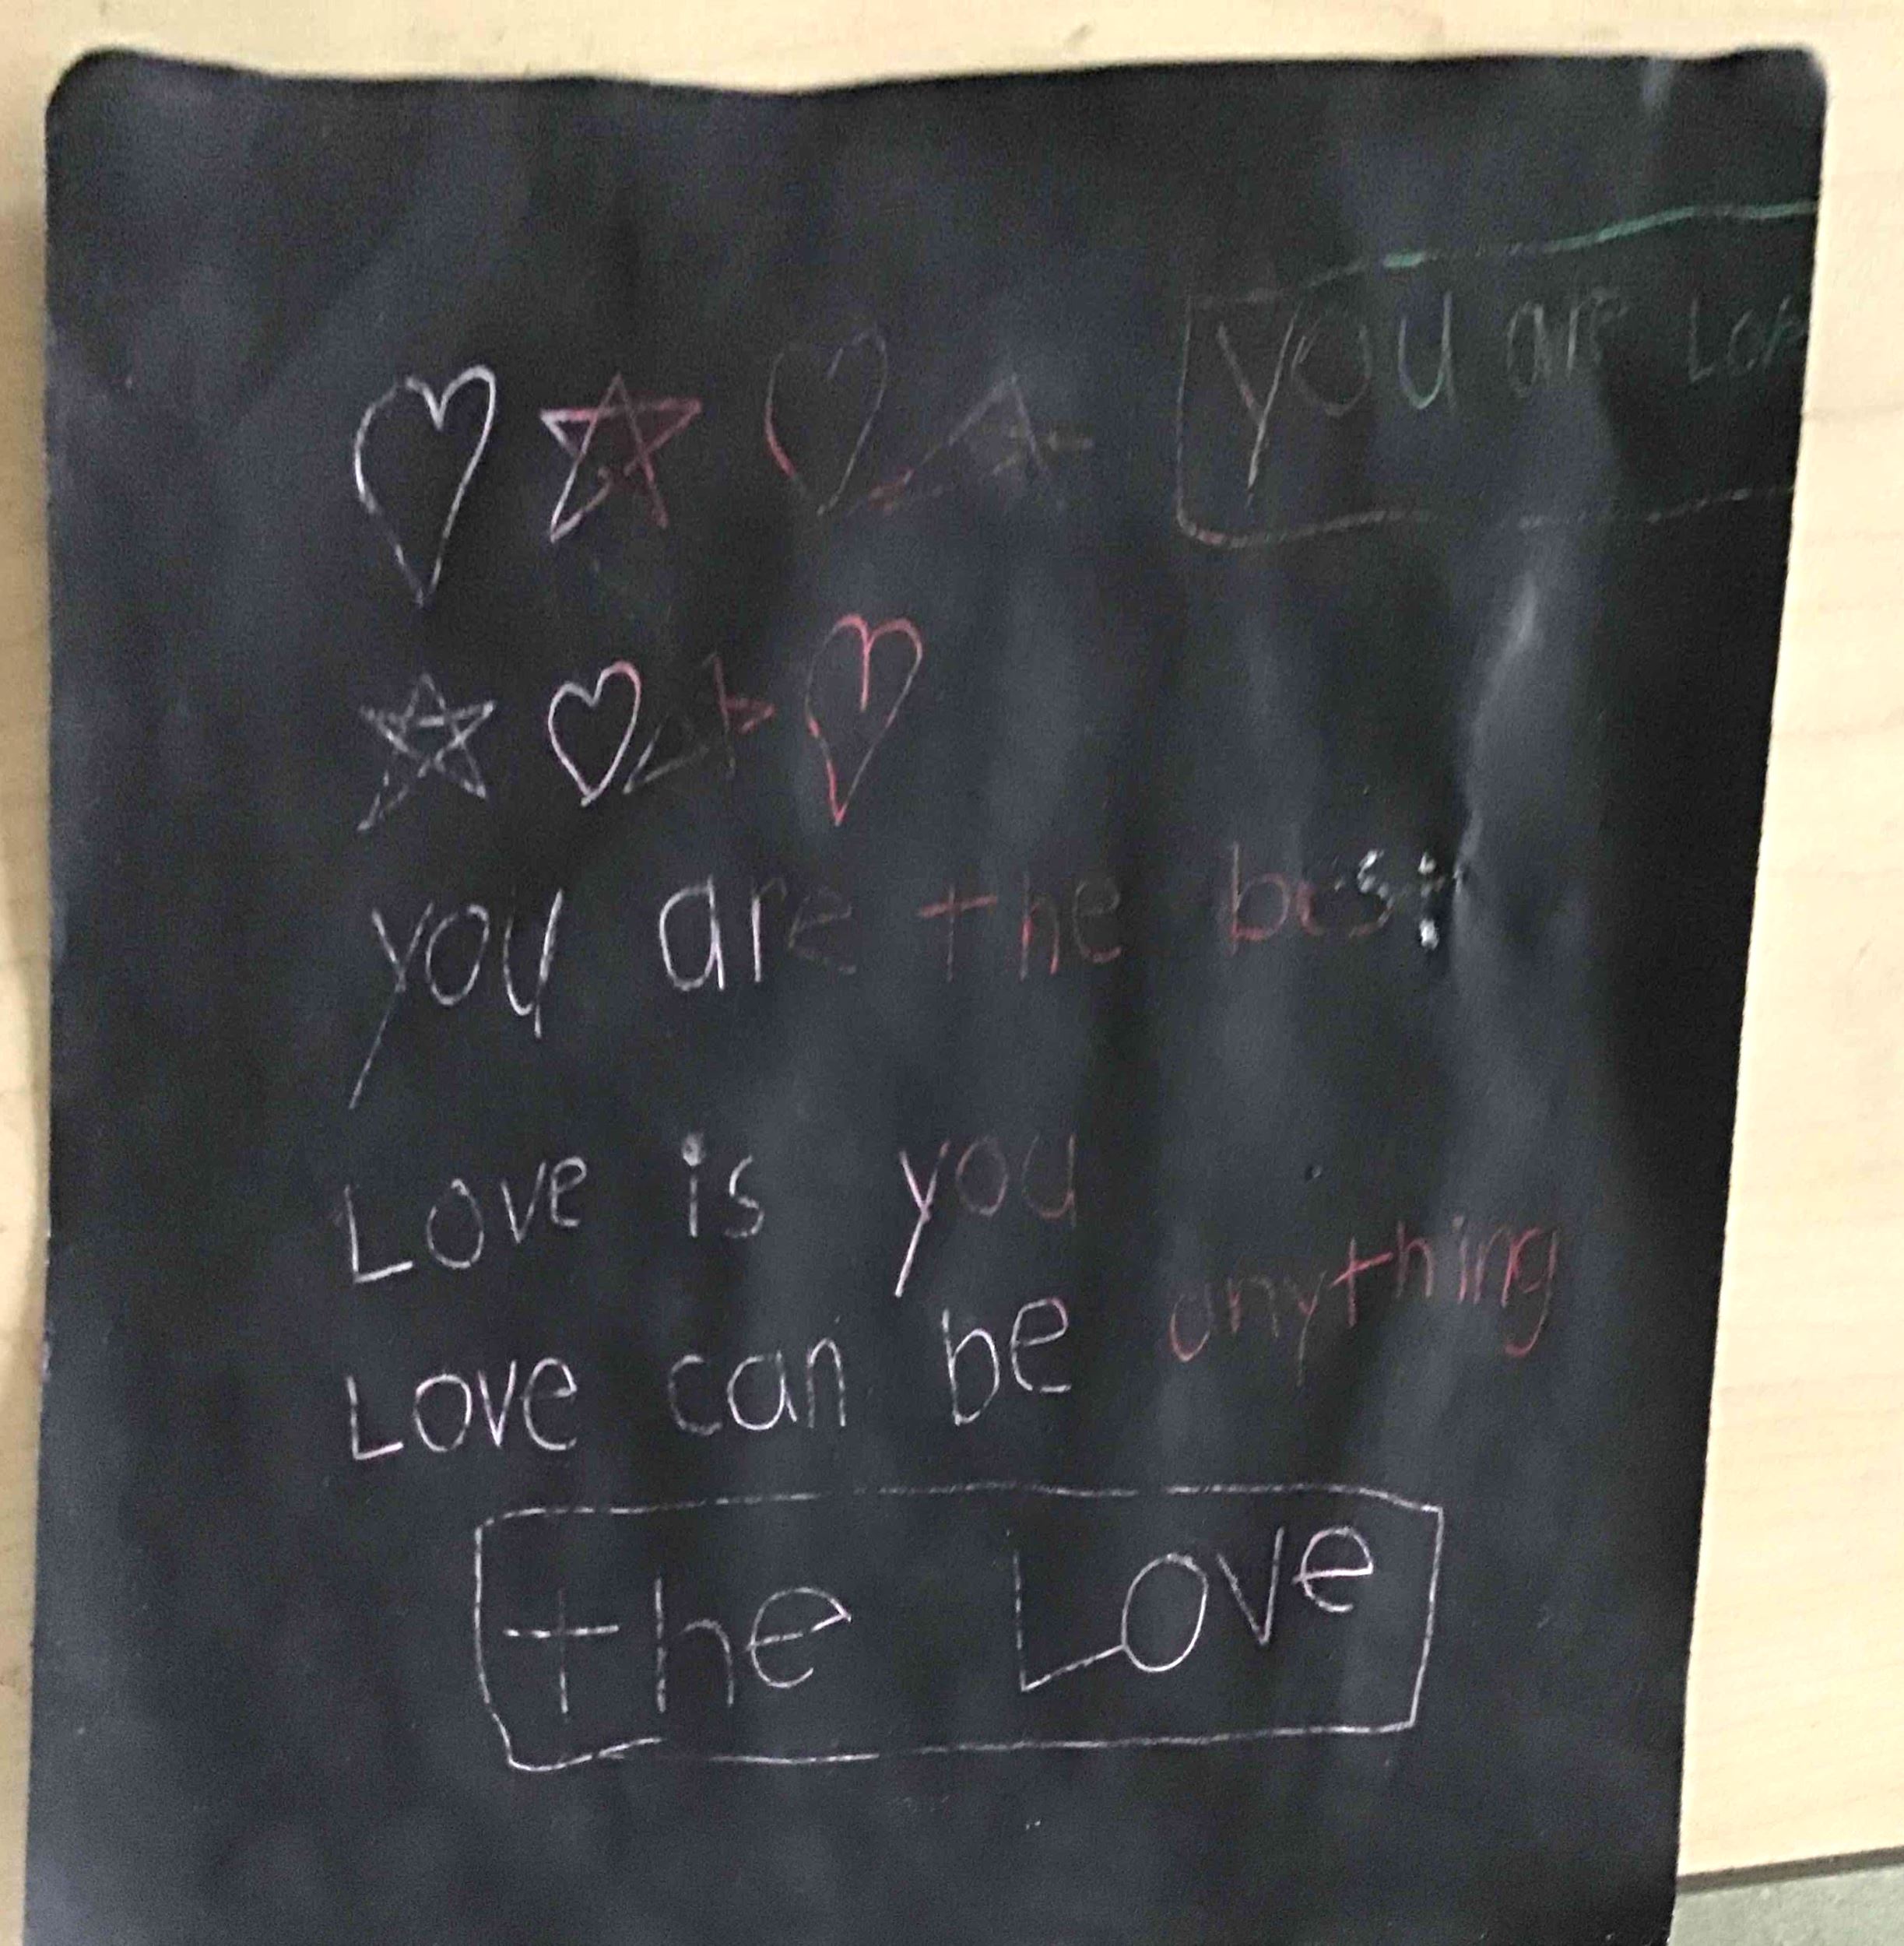 you are
you are the best
Love is you
Love can be anything
the Love